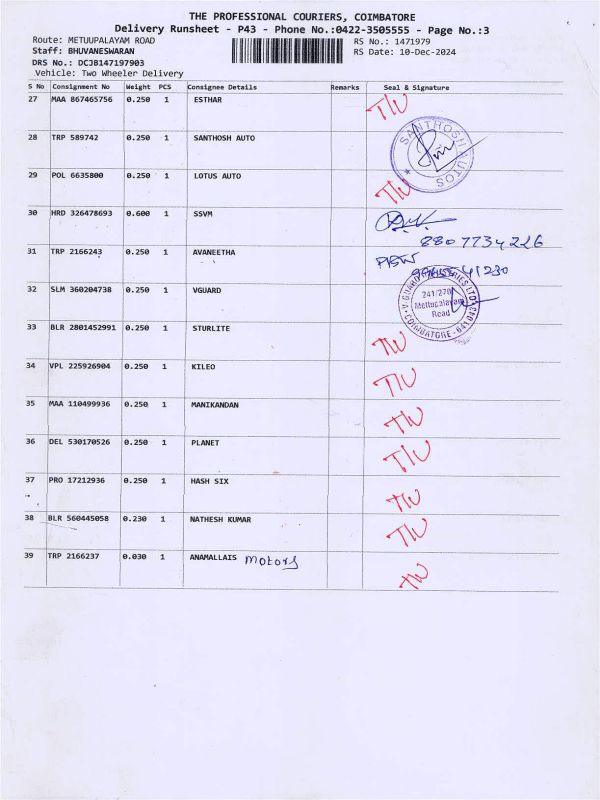 THE PROFESSIONAL COURIERS, COIMBATORE
Delivery Runsheet - P43 - Phone No.:0422-3505555 - Page No.:3
Route: METUUPALAYAM ROAD RS No.: 1471979
Staff: BHUVANESWARAN RS Date: 10-Dec-2024
DRS No.: DCJB147197903
Vehicle: Two Wheeler Delivery
S No Consignment No Weight PCS Consignee Details Remarks Seal & Signature
27 MAA 867465756 0.250 1 ESTHAR T/W
28 TRP 589742 0.250 1 SANTHOSH AUTO SANTHOSH AUTOS
29 POL 6635800 0.250 1 LOTUS AUTO T/W
30 HRD 326478693 0.600 1 SSVM
8807734226
31 TRP 2166243 0.250 1 AVANEETHA
32 SLM 360204738 0.250 1 VGUARD
241/270 Mettupalayam Road
COIMBATORE - 641 043
33 BLR 2801452991 0.250 1 STURLITE T/W
34 VPL 225926904 0.250 1 KILEO T/W
35 MAA 110499936 0.250 1 MANIKANDAN T/W
36 DEL 530170526 0.250 1 PLANET T/W
37 PRO 17212936 0.250 1 HASH SIX T/W
38 BLR 560445058 0.230 1 NATHESH KUMAR T/W
39 TRP 2166237 0.030 1 ANAMALLAIS Motors T/W